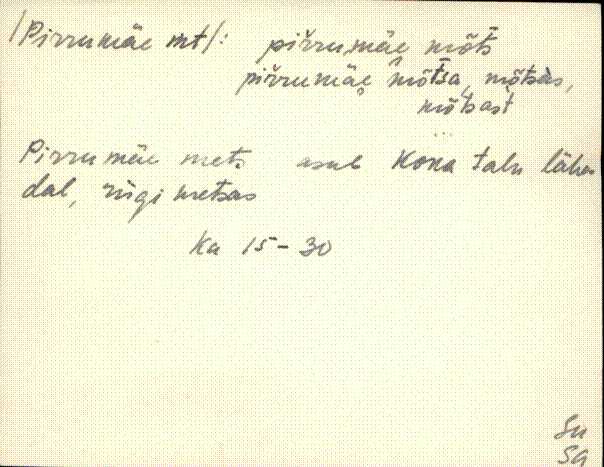 /Pirrumäe mt/: pirrumäe mõts
pirrumäe mõtsa, mõtsas,
mõtsast
Pirrumäe mets asub Kona talu lähe
dal, riigi metsas
Ka 15-30
Su
Sa